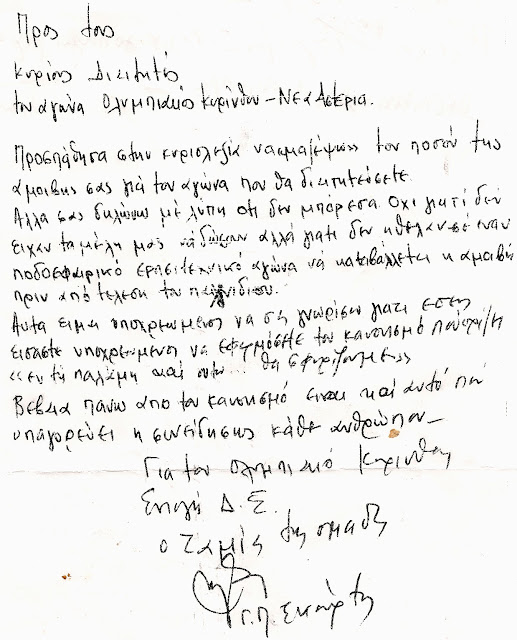 Προς τους
κυρίους Διαιτητές
του αγώνα Ολυμπιακός Κυρίνθου - Νέα Αστέρια.
Προσπάθησα στην κυριολεξία να «μαζέψω» τον ποσόν της
αμοιβής σας για τον αγώνα που θα διαιτητεύσετε.
Αλλα σας δηλώνω με λύπη οτι δεν μπόρεσα. Οχι γιατί δεν
ειχαν τα μέλη μας να δώσουν αλλά γιατι δεν ηθελαν σέ έναν
ποδοσφαιρικό ερασιτεχνικό αγώνα νά καταβάλλεται η αμοιβή
πριν από τέλεση του παιχνιδιου.
Αυτα ειμαι υποχρεωμενος να σας γνωρίσω γιατι εσεις
εισαστε υποχρεωμενοι να εφαρμόσετε τον κανονισμό που
«εν τη παλάμη και ουτω... θα σφυρίζουμε»
Βέβαια πανω απο τον κανονισμό είναι καί αυτό πού
υπαγορεύει η συνείδησης κάθε ανθρώπου_
Για τον Ολυμπιακό Κυρίνθου
Εντολή Δ.Σ.
ο Ταμίας της ομαδας